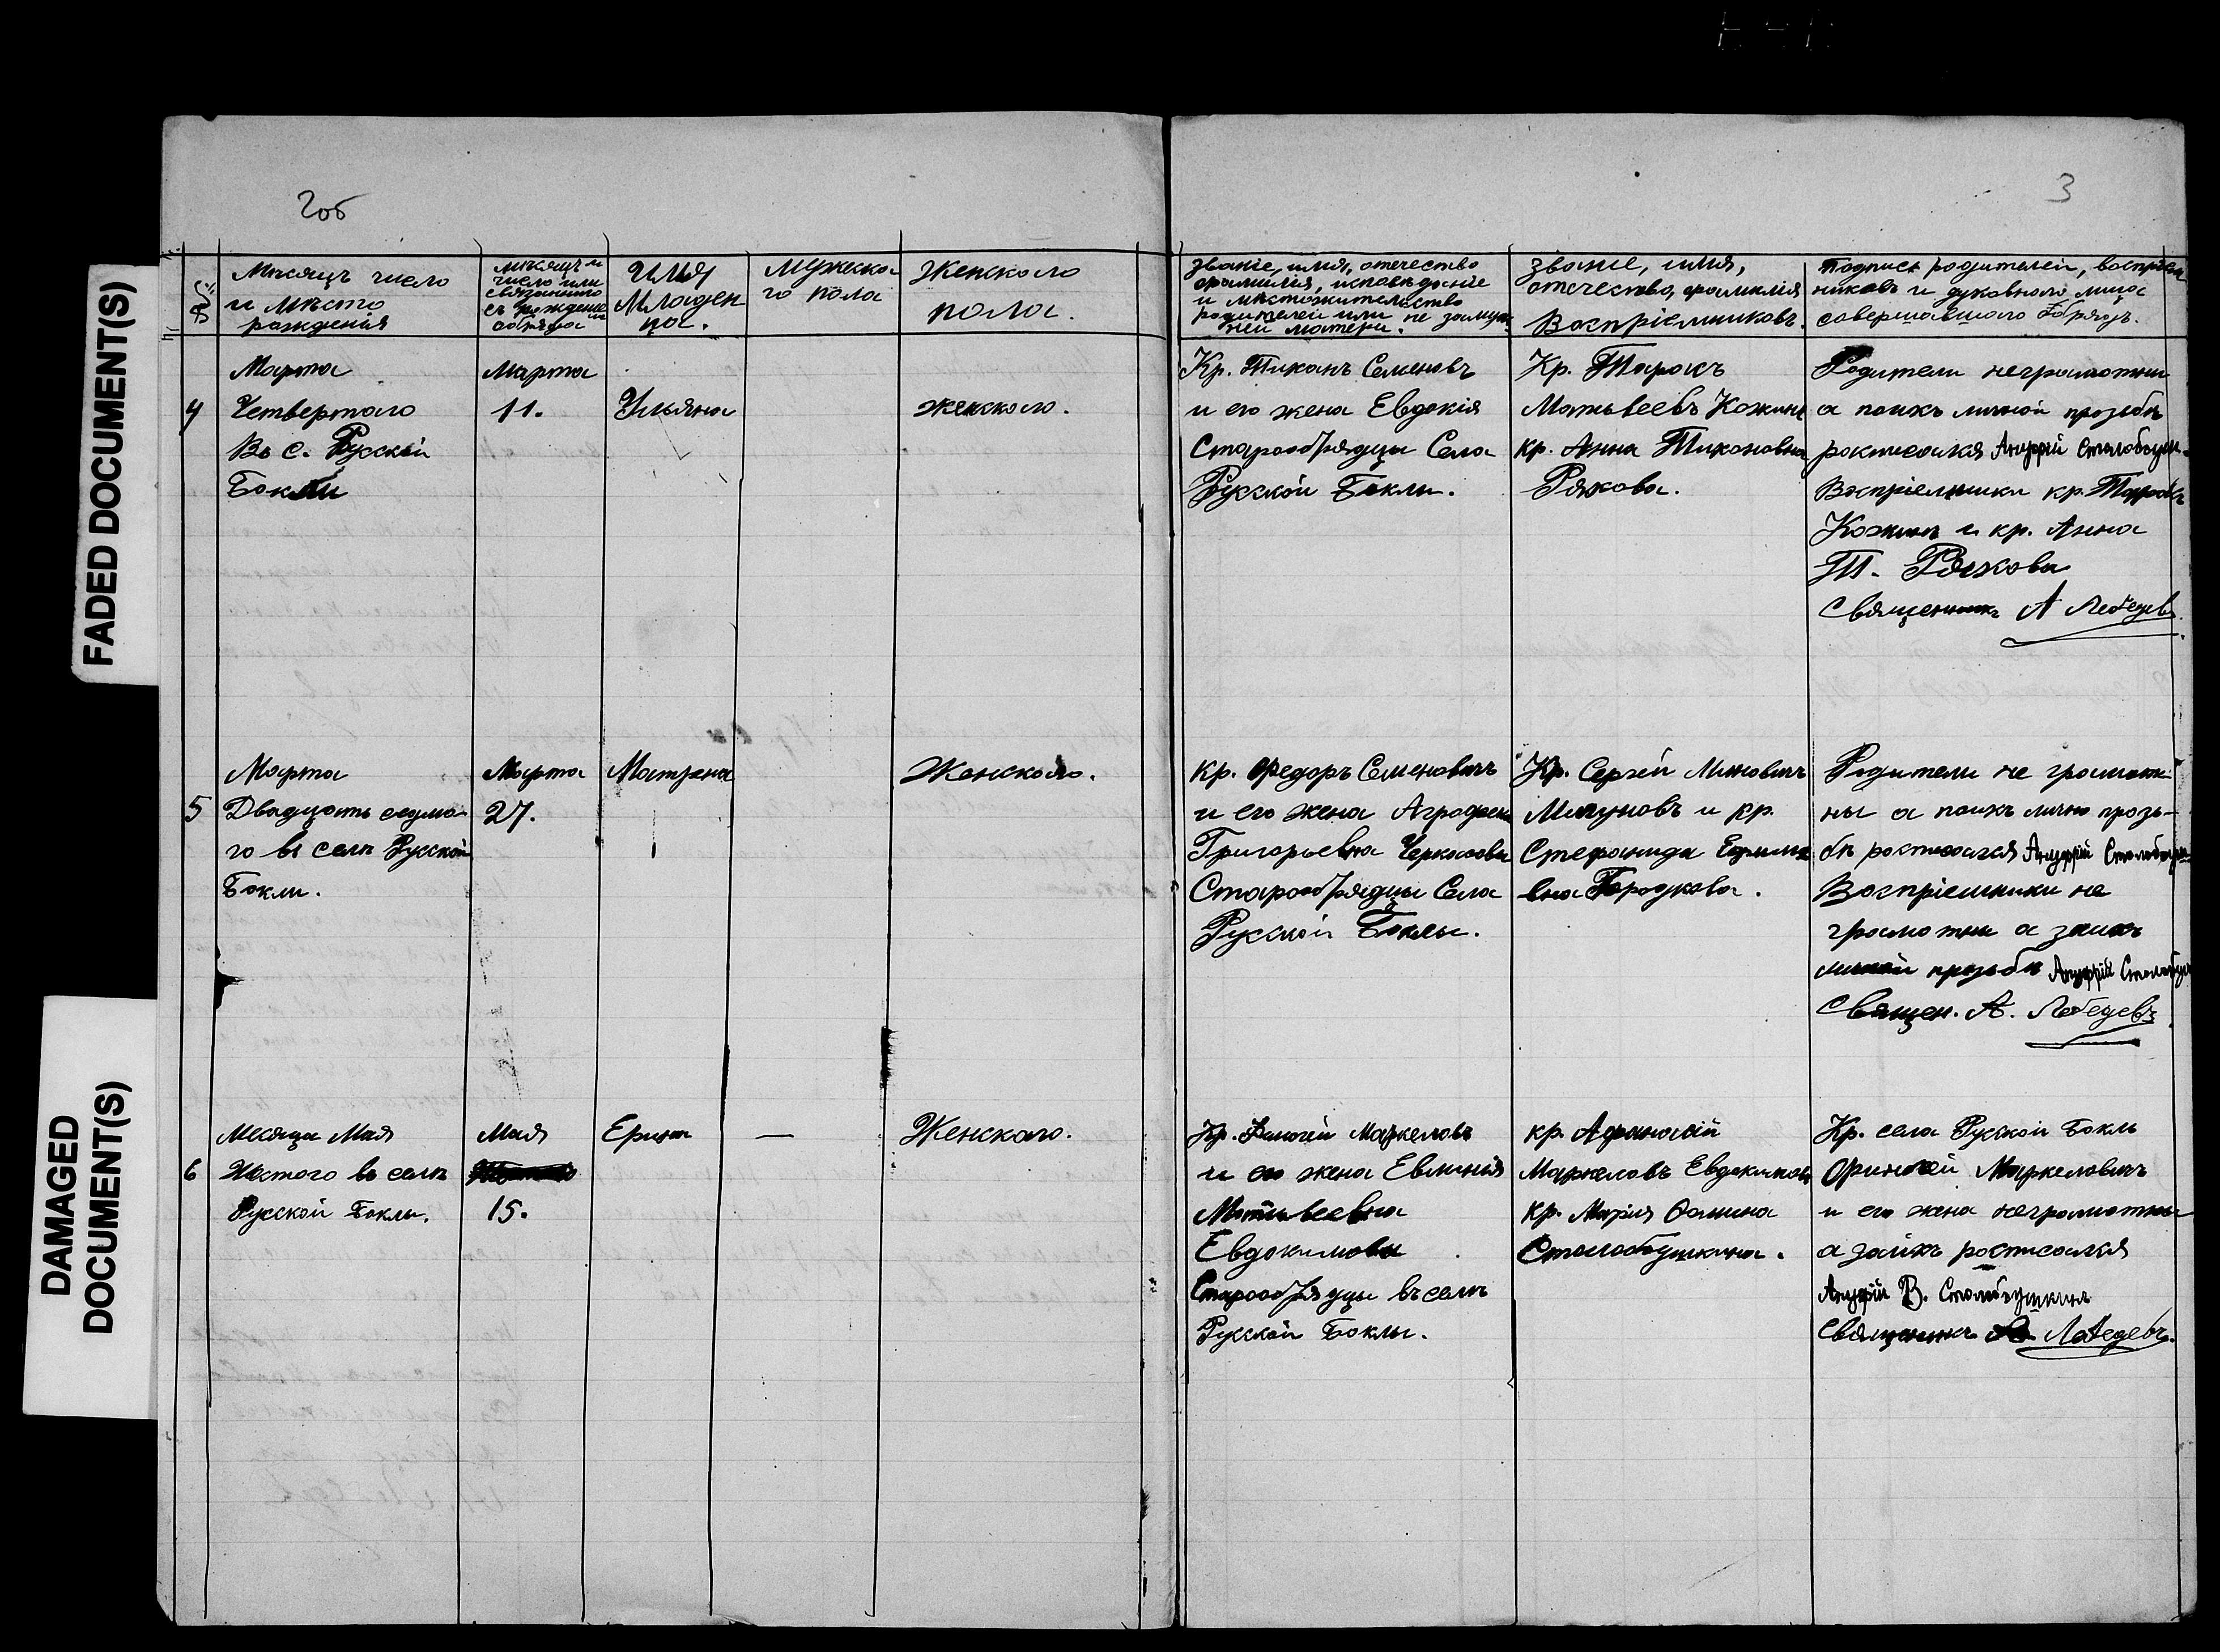 FADED DOCUMENT(S)
DAMAGED
DOCUMENT(S)
2об
3
№
Мѣсяцъ число
и мѣсто
рожденія
мѣсяцъ и
число или
связаннаго
съ рожденіе
обряда
имя
Младен
ца.
мужеска
го пола
Женскаго
пола.
Званіе, имя, отечество
фамилія, исповѣданіе
и мѣстожительство
родителей или не замуж
ней матери.
Званіе, имя,
отечество, фамилія
Воспріемниковъ.
Подпись родителей, воспріем
никовъ и духовнаго лица
совершавшаго обрядъ.
Марта
4 Четвертаго
Въ с. Русской
Бокли
Марта
11.
Ульяна
женскаго.
Кр. Тиханъ Семеновъ
и его жена Евдокія
Старообрядцы Села
Русской Бокли.
Кр. Таракъ
Матвеевъ Кожинъ
кр. Анна Тихановна
Ряхова.
Родители неграмотни
а поихъ личной прозьбѣ
росписался Ануфрій Столобоуш-
Воспріемники кр. Тарахъ
Кожинъ и кр. Анна
Т. Ряхова
Священникъ А Лебедевъ
Марта
5 Двадцать седмо-
го въ селѣ Русской
Бокли.
Марта
27.
Матрена
Женскаго.
Кр. Федоръ Семеновичъ
и его жена Аграфена
Григорьевна Черкасова
Старообрядцы Села
Русской Боклы.
Кр. Сергей Миновичъ
Мигуновъ и кр.
Стефанида Ефимо
вна Городкова.
Родители не грамот-
ны а поихъ лично прозь-
бѣ росписался Ануфрій Столобоуш
Воспріемники не
грамотни а заихъ
личной прозьбѣ Ануфрій Столобуш
Священ. А. Лебедевъ
Месяца Мая
6 Шестого въ селѣ
Русской Боклы.
Мая
15.
Ерина
—
Женскаго.
Кр. Финогей Маркеловъ
и его жена Евлинія
Матьвеевна
Евдокимовы
Старообрядцы въ селѣ
Русской Боклы.
кр. Афанасій
Маркеловъ Евдокимовъ
кр. Марія Фомина
Столобоушкина.
Кр. села Русской Бокль
Финогей Маркеловичъ
и его жена неграмотны
а заихъ росписался
Ануфрій В. Столобоушкинъ
Священникъ Лебедевъ.